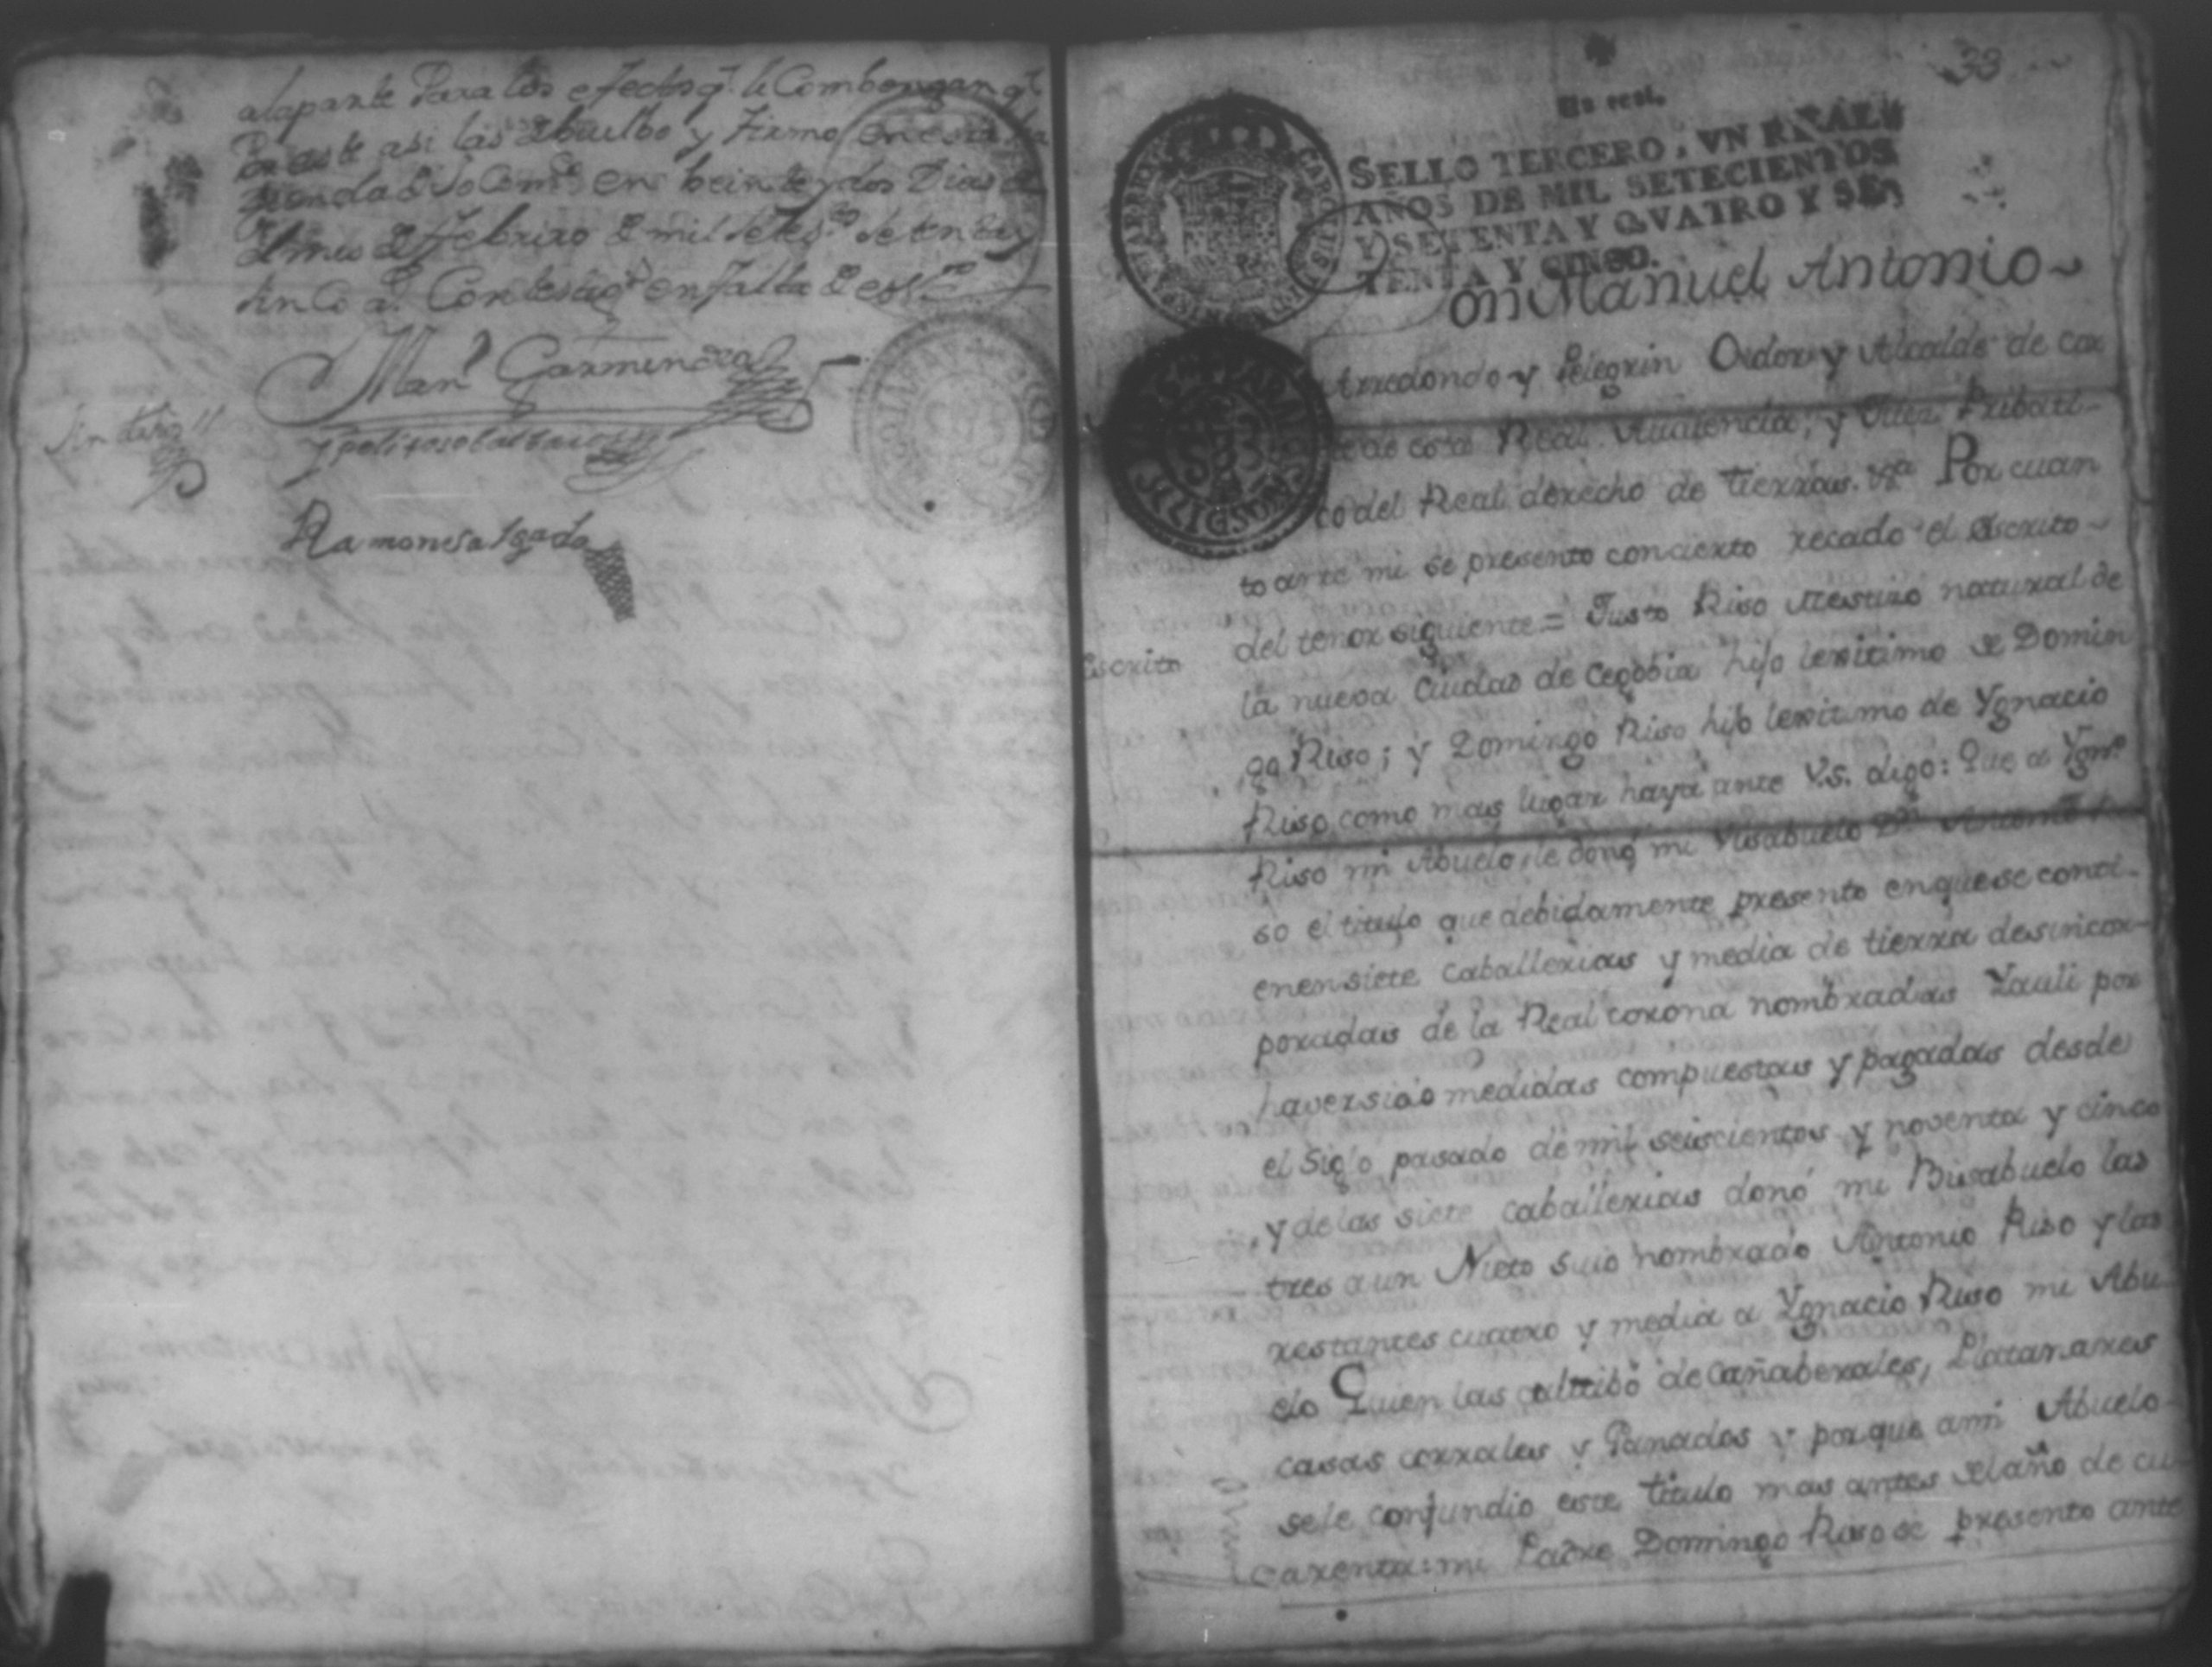 alaparte Para los efectos q.e le Combengan q.e
Por este asi las debuelbo y Firmo en esta ha
zienda de Jocom.co en beinte y dos Dias de
el mes de Febriro de mil setes.os setenta y
sinCo a.s Con testig.s en falta de ess.no
Man.l Garmendia
Sin dros
Ypolito
Ramon Salgado
33
Un real.
SELLO TERCERO, VN REAL,
AÑOS DE MIL SETECIENTOS
Y SETENTA Y QVATRO Y SE-
TENTA Y CINCO.
on Manuel Antonio
Arredondo y Pelegrin Oidor y Alcalde de cor
te de esta Real Audiencia, y Juez Pribati-
co del Real derecho de tierras. V.a Por cuan
to ante mi se presento concierto recado el escrito
Escrito
del tenor siguiente = Justo Riso Mestizo natural de
la nueva Ciudad de Cegobia hijo lexitimo de Domin
go Riso; y Domingo Riso hijo lexitimo de Ygnacio
Riso como mas lugar haya ante V.S. digo: Que a Ygn.o
Riso mi Abuelo, le donó mi Visabuelo D.n Antonio Ri
so el titulo que debidamente presento en que se conti-
enen siete caballerias y media de tierra desincor-
poradas de la Real corona nombradas Yauli por
haver sido medidas compuestas y pagadas desde
el Siglo pasado de mil seiscientos y noventa y cinco
y de las siete caballerias donó mi Bisabuelo las
tres a un Nieto suio nombrado Antonio Riso y las
restantes cuatro y media a Ygnacio Riso mi Abu
elo Quien las cultibó de Cañaberales, Platanares
casas corrales y Ganados y porque a mi Abuelo
se le confundio este titulo mas antes del año de cu
arenta: mi Padre Domingo Riso se presento ante